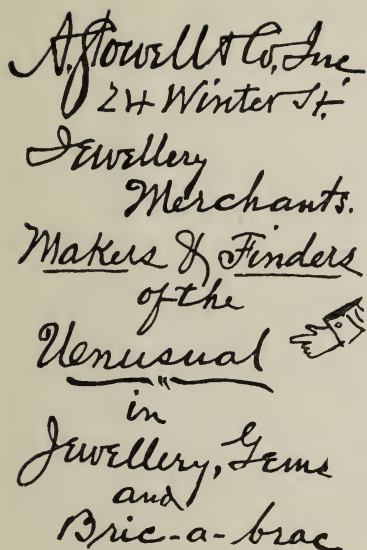 A. Stowell & Co., Inc.
24 Winter St.
Jewellery
Merchants.
Makers & Finders
of the
Uenusual
in
Jewellery, Gems
and
Bric-a-brac